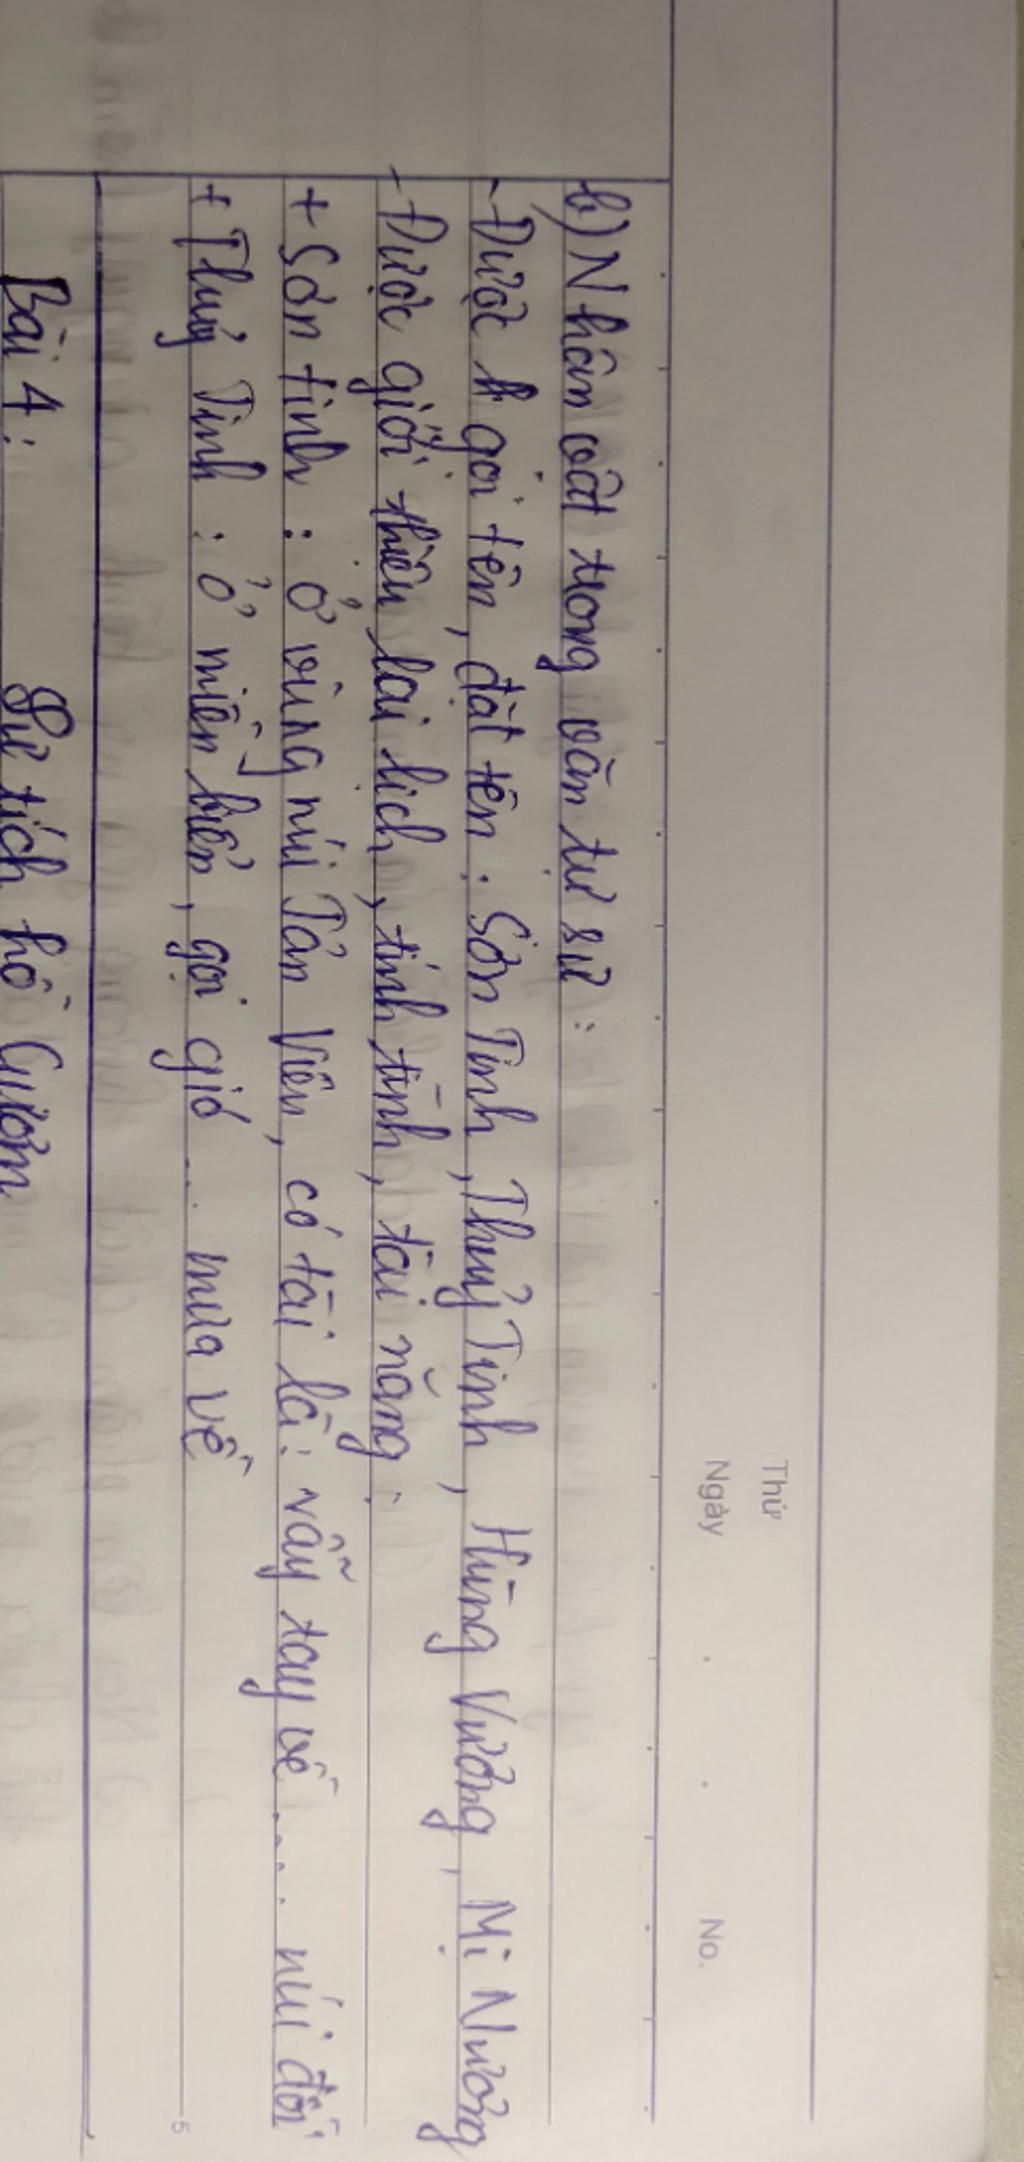 Thứ
Ngày . . No.
b) Nhân vật trong văn tự sự :
- Được gọi tên, đặt tên. Sơn Tinh, Thuỷ Tinh, Hùng Vương, Mị Nương
- Được giới thiệu lai lịch, tính tình, tài năng.
+ Sơn tinh : ở vùng núi Tản Viên, có tài lạ: vẫy tay về .... núi đồi
+ Thuỷ Tinh : ở miền biển, gọi gió ... mưa về
5
Bài 4: Sự tích hồ Gươm